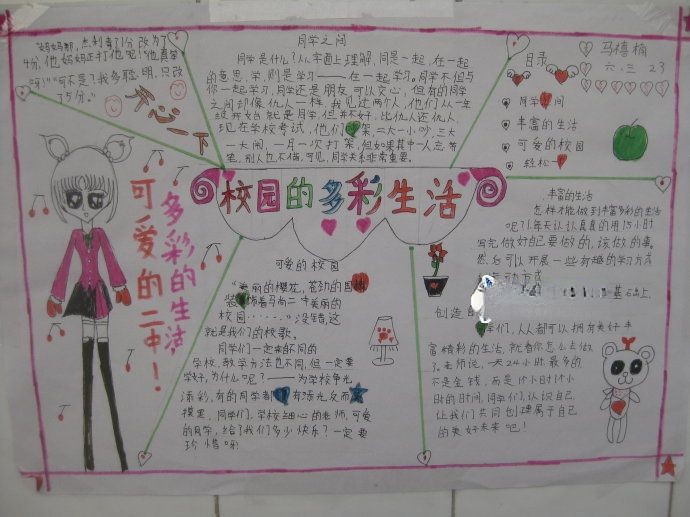 妈妈那,杰利考了1分改为了
4分,他妈妈正打他呢!"他真笨
呀!""可不是?我多聪明,只改
了5分。"
开心一下
同学之间
同学是什么?从字面上理解,同是一起,在一起
的意思,学,则是学习——在一起学习。同学不但与
你一起学习,同学还是朋友可以交心,但有的同学
之间却像仇人一样,我见过两个人,他们从一年
级开始就是同学,但并不好,比仇人还仇人,
现在学校考试,他们
架,二天一小吵,三天
一大闹,一月一次打架,但如果其中一人忘带
笔,别人也不借,可见,同学关系非常重要。
目录
同学 间
丰富的生活
可爱的校园
轻松一
马禧楠
六.三 23
校园的多彩生活
多彩的生活
可爱的二中!
可爱的校园
"美丽的樱花,苍劲的国槐
装 饰着马尚二中美丽的
校园······"没错,这
就是我们的校歌。
同学们一定来自不同的
学校,教学方法也不同,但一定要
学好,为什么呢?——为学校争光
添彩,有的同学都
没有添光反而
摸黑,同学们,学校细心的老师,可爱
的同学,给了我们多少快乐?一定要
珍惜呀!
丰富的生活
怎样才能做到丰富多彩的生活
呢?1.每天认认真真的用15小时
写完做好自己要做的,该做的事,
然后可以开展一些有趣的学习方式
基石出上,
创造
学们,人人都可以拥有美好丰
富精彩的生活,就看你怎么去做
了。老师说,一天24小时最多的
不是金钱,而是1个小时1个小
时的时间,同学们,认识自己,
让我们共同创理属于自己
的美好未来吧!